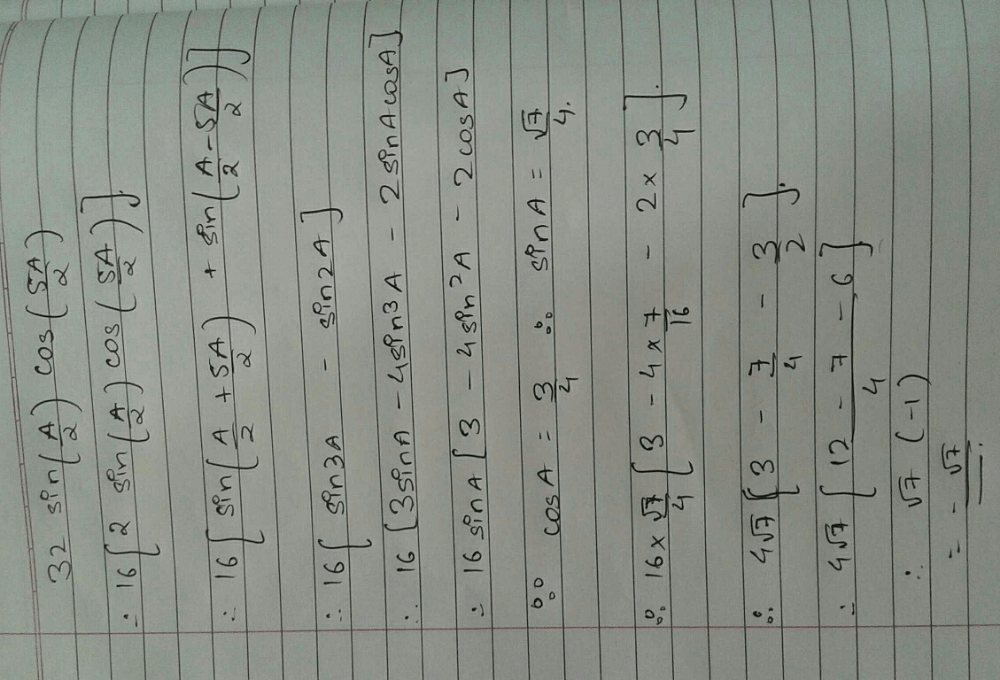 32 sin(A/2) cos(5A/2)
∴ 16[2 sin(A/2) cos(5A/2)].
∴ 16[sin(A/2 + 5A/2) + sin(A/2 - 5A/2)]
∴ 16[sin3A - sin2A]
∴ 16[3sinA - 4sin³A - 2sinAcosA]
∴ 16 sinA[3 - 4sin²A - 2cosA]
∵ cosA = 3/4 ∴ sinA = √7/4.
∴ 16×√7/4[3 - 4×7/16 - 2×3/4].
∴ 4√7[3 - 7/4 - 3/2].
∴ 4√7[12 - 7 - 6/4]
∴ √7(-1)
= -√7.